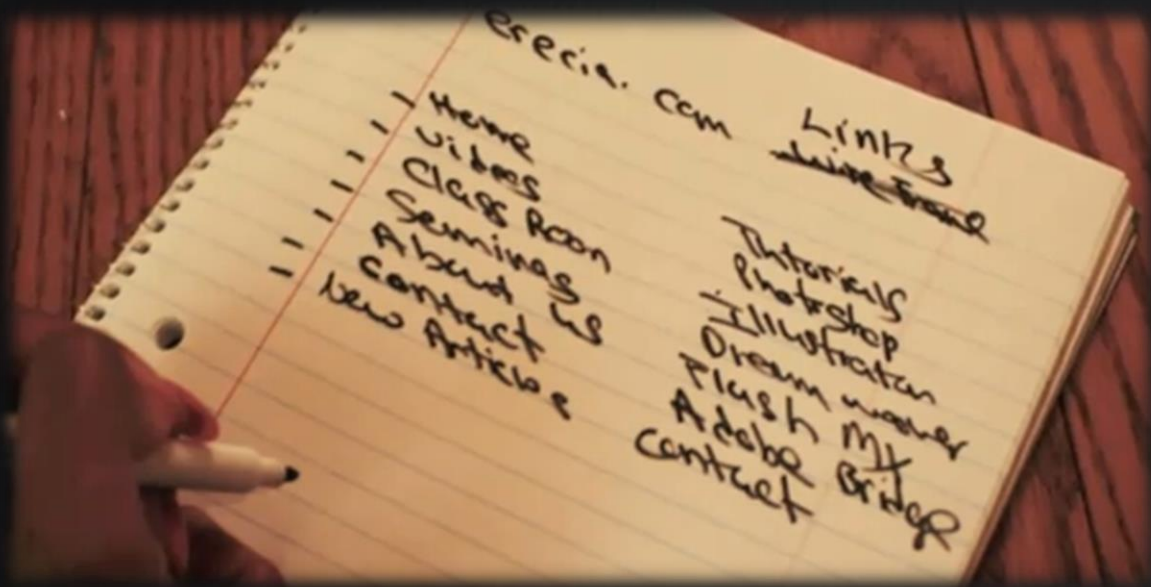 ereria. com
Links
Home
Videos
Class Room
Seminas
About us
Contact
New Articles
Tutorials
Photoshop
Illustrator
Dream weaver
Flash MX
Adobe Bridge
Contact